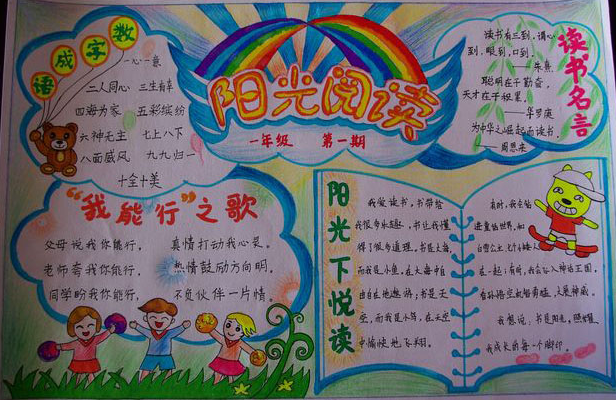 数字成语
一心一意
二人同心 三生有幸
四海为家 五彩缤纷
六神无主 七上八下
八面威风 九九归一
十全十美
阳光阅读
一年级 第一期
读书名言
读书有三到,谓心
到、眼到、口到。
——朱熹
聪明在于勤奋,
天才在于积累。
——华罗庚
为中华之崛起而读书
——周恩来
“我能行”之歌
父母说我你能行,真情打动我心灵。
老师夸我你能行,热情鼓励方向明。
同学盼我你能行,不负伙伴一片情。
阳光下悦读
我爱读书,书带给
我很多乐趣,书让我懂
得了很多道理。书是大海,
而我是小鱼,在大海中自
由自在地遨游;书是天
空,而我是小鸟,在天空
中愉快地飞翔。
有时,我会钻
进童话世界,和
白雪公主、七个小矮人
在一起;有时,我会
我想说:书是阳光,照耀
我成长的每一个脚印。